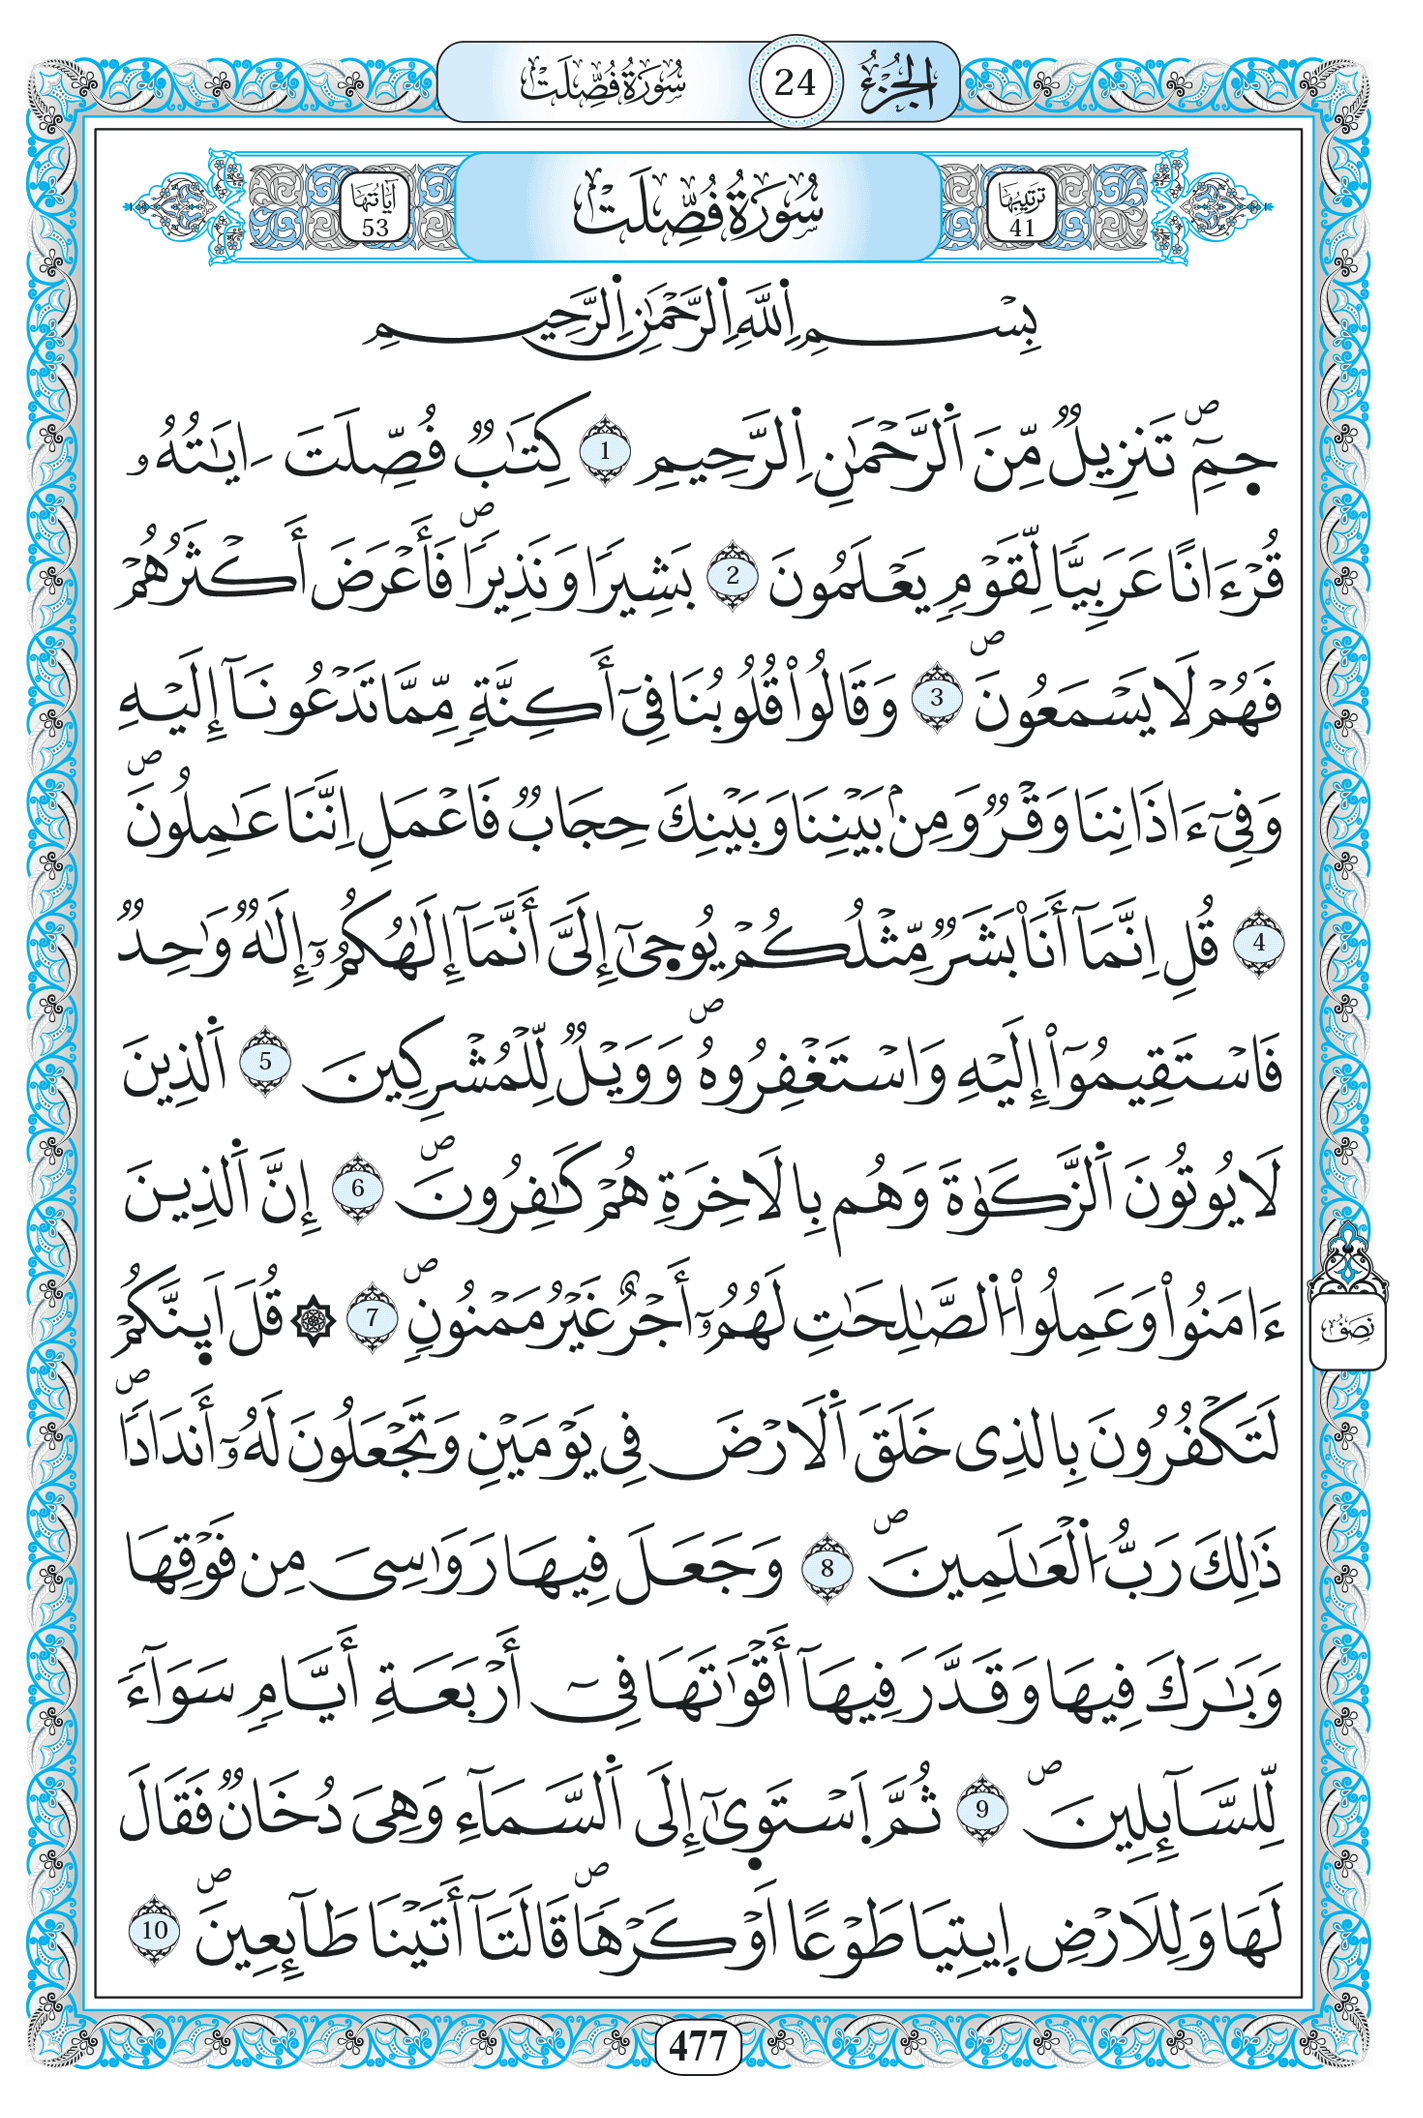 الجزء 24 سورة فصلت
ترتيبها 41 سورة فصلت آياتها 53
بِسْمِ اِ۬للَّهِ اِ۬لرَّحْمَٰنِ اِ۬لرَّحِيمِ
جمِٓۖ تَنزِيلٞ مِّنَ اَ۬لرَّحْمَٰنِ اِ۬لرَّحِيمِ 1 كِتَٰبٞ فُصِّلَتَ ـ ايَٰتُهُۥ
قُرْءَاناً عَرَبِيّاٗ لِّقَوْمٖ يَعْلَمُونَ 2 بَشِيراٗ وَنَذِيراٗۖ فَأَعْرَضَ أَكْثَرُهُمْ
فَهُمْ لَا يَسْمَعُونَۖ 3 وَقَالُواْ قُلُوبُنَا فِےٓ أَكِنَّةٖ مِّمَّا تَدْعُونَآ إِلَيْهِ
وَفِےٓ ءَاذَانِنَا وَقْرٞ وَمِنۢ بَيْنِنَا وَبَيْنِكَ حِجَابٞ فَاعْمَلِ اِنَّنَا عَٰمِلُونَۖ
4 قُلِ اِنَّمَآ أَنَا۠ بَشَرٞ مِّثْلُكُمْ يُوحىٰٓ إِلَيَّ أَنَّمَآ إِلَٰهُكُمُۥٓ إِلَٰهٞ وَٰحِدٞ
فَاسْتَقِيمُوٓاْ إِلَيْهِ وَاسْتَغْفِرُوهُۖ وَوَيْلٞ لِّلْمُشْرِكِينَ 5 اَ۬لذِينَ
لَا يُوتُونَ اَ۬لزَّكَوٰةَ وَهُم بِالَاخِرَةِ هُمْ كَٰفِرُونَۖ 6 إِنَّ اَ۬لذِينَ
ءَامَنُواْ وَعَمِلُواْ اُ۬لصَّٰلِحَٰتِ لَهُمُۥٓ أَجْرٌ غَيْرُ مَمْنُونٖۖ 7 ۞ قُلَ اَي۪نَّكُمْ
لَتَكْفُرُونَ بِالذِے خَلَقَ اَ۬لَارْضَ فِے يَوْمَيْنِ وَتَجْعَلُونَ لَهُۥٓ أَندَاداٗۖ
ذَٰلِكَ رَبُّ اُ۬لْعَٰلَمِينَۖ 8 وَجَعَلَ فِيهَا رَوَٰسِيَ مِن فَوْقِهَا
وَبَٰرَكَ فِيهَا وَقَدَّرَ فِيهَآ أَقْوَٰتَهَا فِےٓ أَرْبَعَةِ أَيَّامٖ سَوَآءٗ
لِّلسَّآئِلِينَۖ 9 ثُمَّ اَ۪سْتَو۪ىٰٓ إِلَى اَ۬لسَّمَآءِ وَهِيَ دُخَانٞ فَقَالَ
لَهَا وَلِلَارْضِ اِ۪يتِيَا طَوْعاً اَوْ كَرْهاٗۖ قَالَتَآ أَتَيْنَا طَآئِعِينَۖ 10
نصف
477